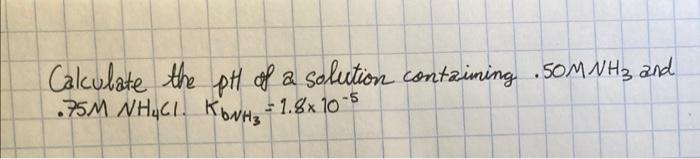 Calculate the pH of a solution containing .50M NH₃ and
.75M NH₄Cl. KbNH₃ = 1.8x10⁻⁵